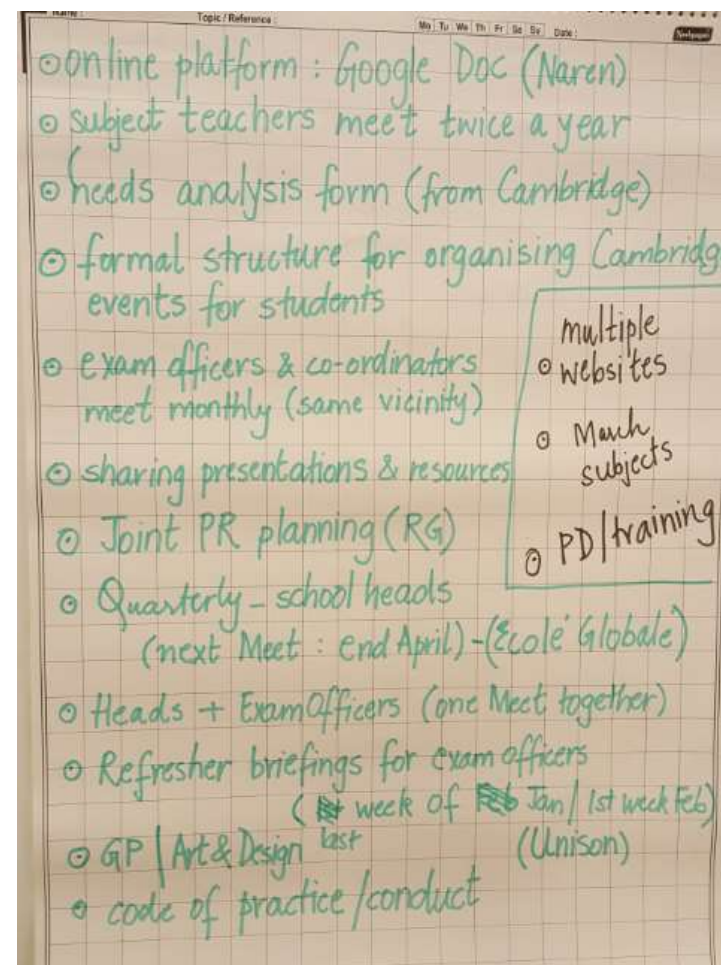 Name :
Topic / Reference :
Mo Tu We Th Fr Sa Su Date :
online platform : Google Doc (Naren)
subject teachers meet twice a year
needs analysis form (from Cambridge)
formal structure for organising Cambridg
events for students
exam officers & co-ordinators
meet monthly (same vicinity)
sharing presentations & resources
Joint PR planning (RG)
Quarterly - school heads
(next Meet : end April) - (Ecolé Globale)
Heads + Exam Officers (one Meet together)
Refresher briefings for exam officers
( last week of Jan / 1st week Feb)
GP | Art & Design
(Unison)
code of practice / conduct
multiple
websites
March
subjects
PD / training